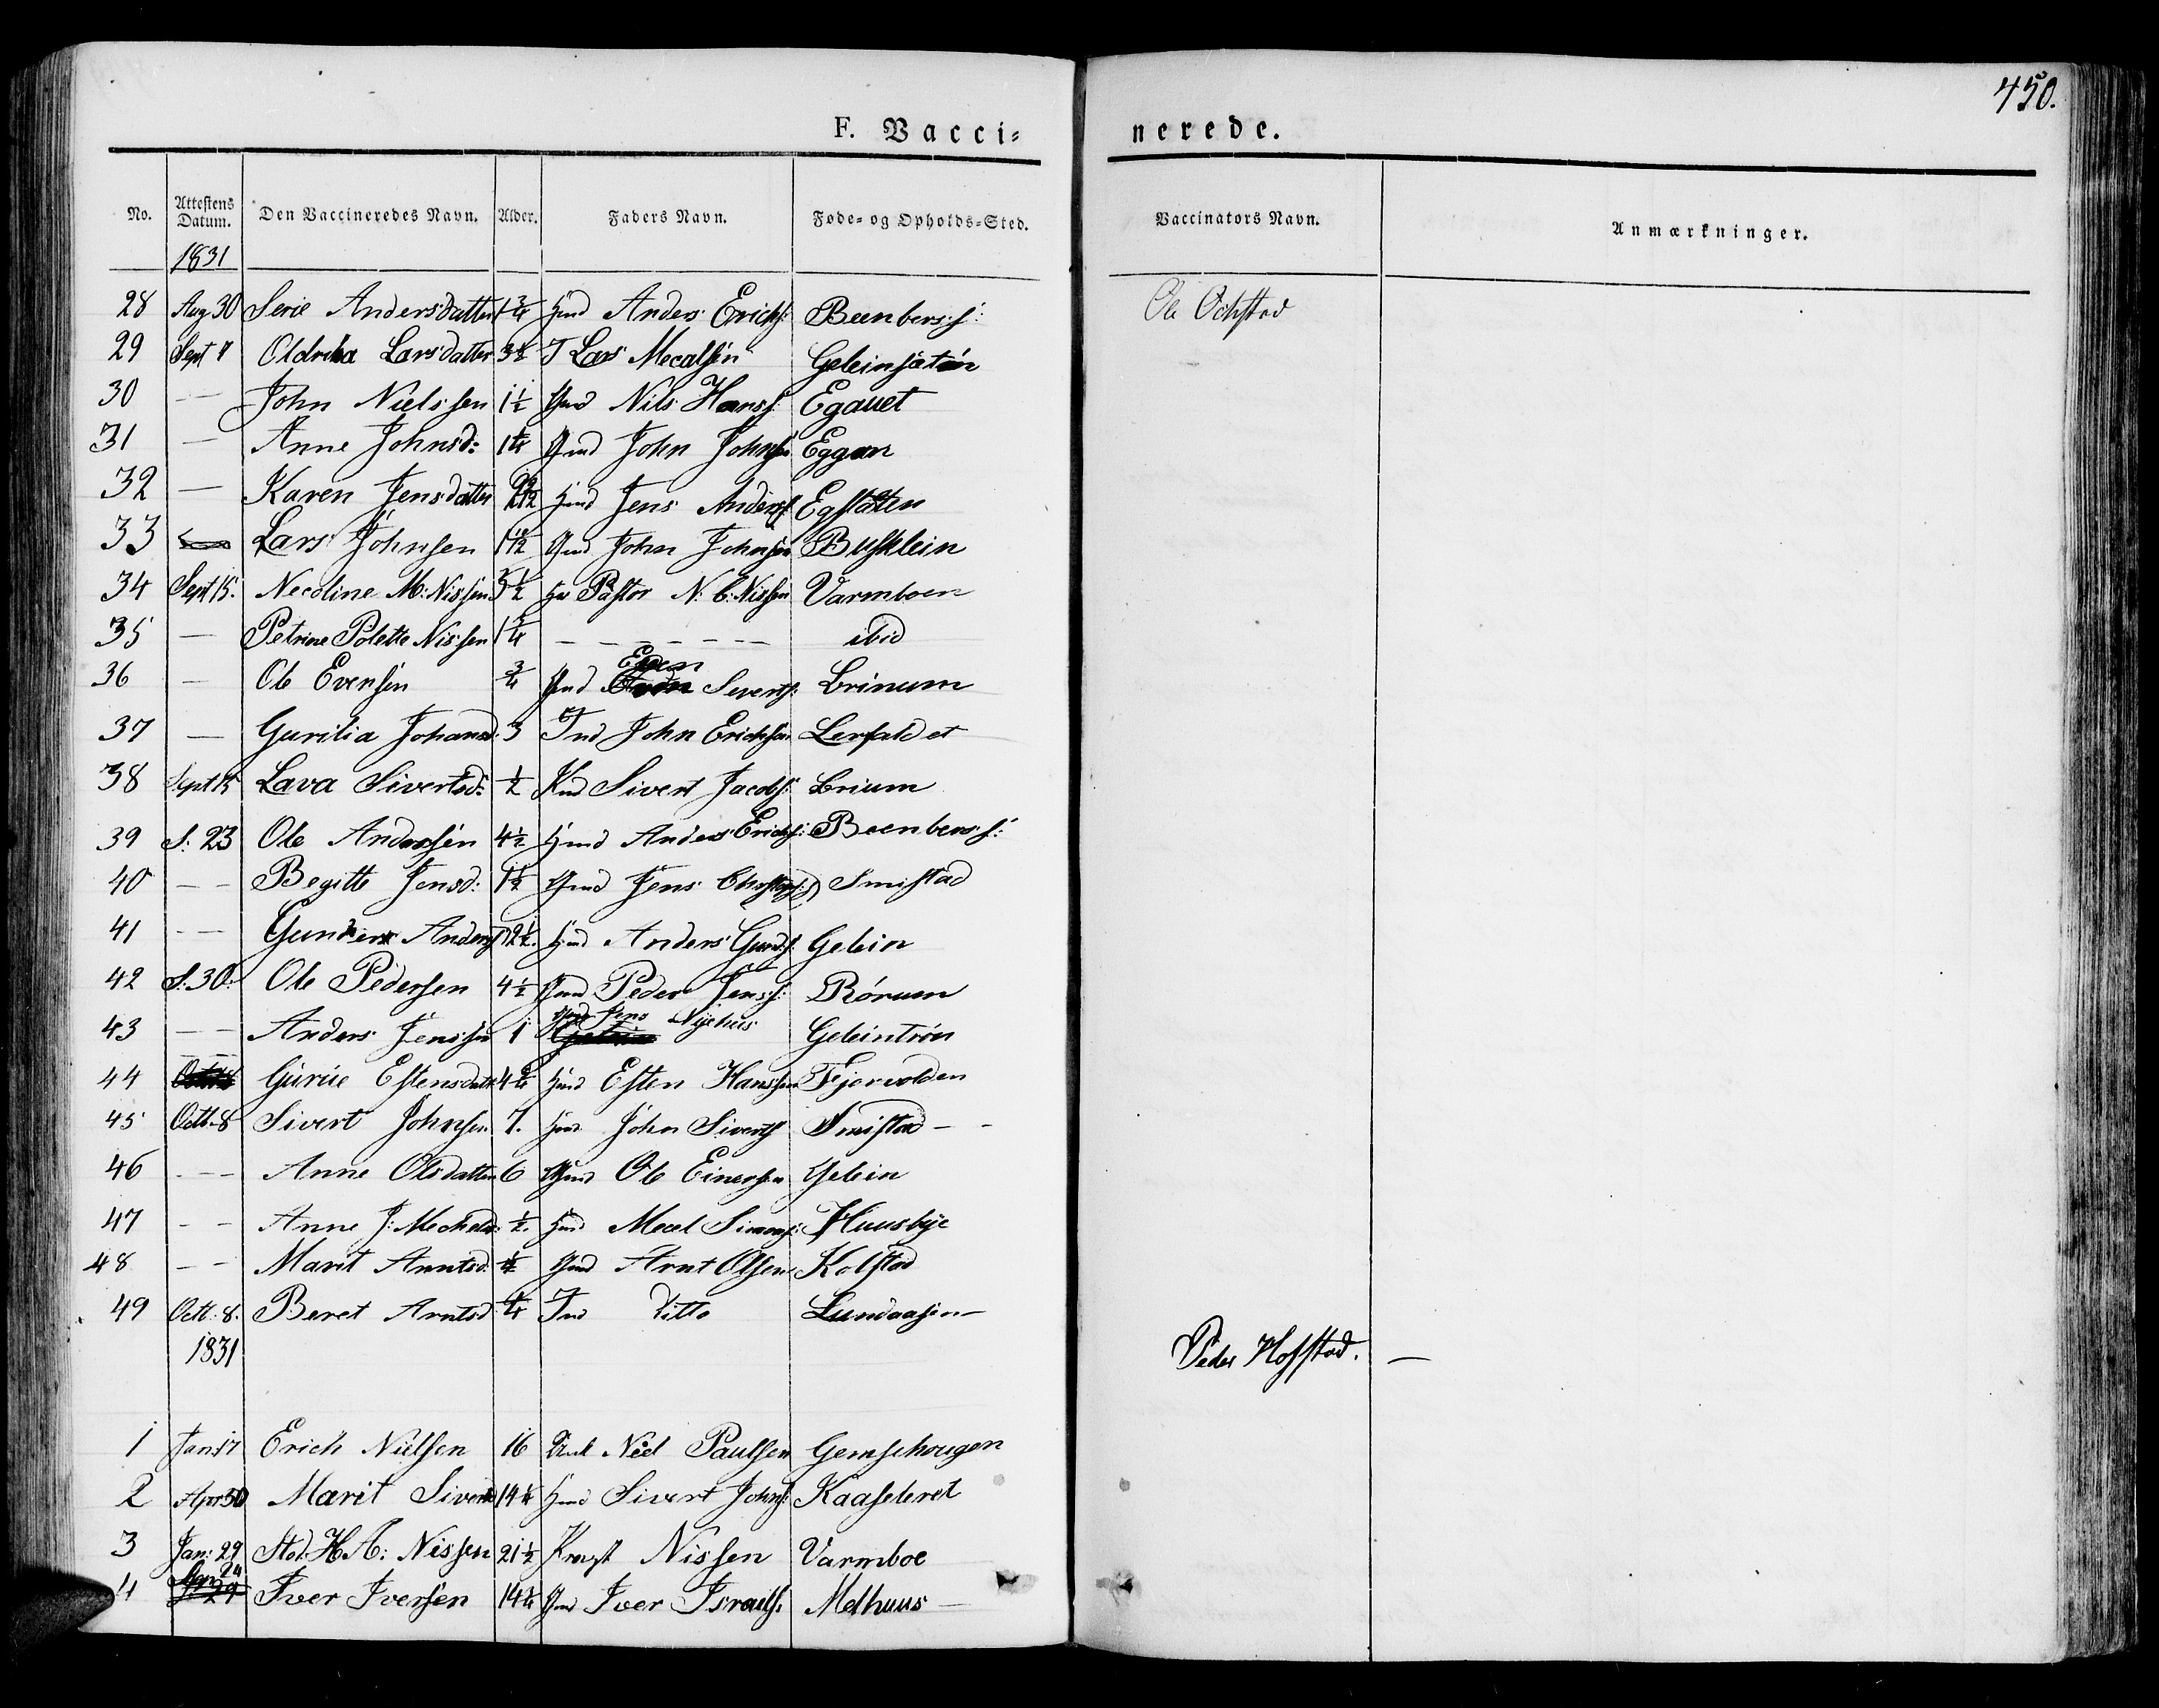 450.
F. Vacci- nerede.
No. Attestens Datum. Den Vaccineredes Navn. Alder. Faders Navn. Føde- og Opholds-Sted. Vaccinators Navn. Anmærkninger.
1831
28 Aug 30 Serie Andersdatter 1 3/4 Hmd Anders Erichs: Beenbers:
29 Sept 7 Lars datter 3 1/2 Lars
30 — — John Nielssen 1 1/2 Gmd Nils Hans: Egauet
31 — Anne Johnsd: 1 1/4 Gmd John Johnsen Eggen
32 — Karen Jensdatter Hmd Jens Anders:
33 Lars Johnsen Gmd John Johnsen Busklein
34 Sept 15. Necoline M: Nissen 5 1/2 Hr Pastor N: C: Nissen Varmboen
35 — Petrine Polette Nissen 1 3/4 — — — — — — ibid
36 — Ole Evensen 3/4 Gmd Even Siverts: Brinum
37 — Gurilia Johansd: 3 Ind John Erichsen Lerfaldet
38 Sept 15 Lava Sivertsd: 1/2 Sivert Jacobs: Brium
39 S: 23 Ole Andersen 4 1/2 Hmd Anders Erichs: Beenbers:
40 — — Begitte Jensd: 1 1/2 Gmd Jens Smistad
41 — — Gunder Anders: 2 1/2 Hmd Anders Gunds: Gelein
42 S: 30: Ole Pedersen 4 1/2 Gmd Peder Jens: Rórum
43 — — Anders Jenssen 1 Gmd Jens Nyehus Geleintrón
44 — — Gurúe Estensdatt 4 3/4 Hmd Esten Hanssen Fjervolden
45 Octb 8 Sivert Johnsen 7. Hmd John Siverts: Smistad — —
46 — — Anne Olsdatter 6 Gmd Ole Einersen Gelein
47 — — Anne J: Mechelsd: 1/2. Hmd Mecel Simons: Huusbye
48 — — Marit Arntsd: 1/4 Gmd Arnt Olsen Kolstad
49 Octb: 8. Beret Arntsd 1/4 Ind Ditto Lundaasen —
1831 Peder Hofstad. —
1 Jan 17 Erich Nielsen 16 Niel Paulsen Gemsehougen
2 Apr 30 Marit Siverts 14 1/4 Hmd Sivert Johns: Kaaseleret
3 Jan: 29 Stud: H A: Nissen 21 1/2 Nissen Varmboe
4 Iver Iversen 14 1/4 Gmd Iver Israels: Melhuus —